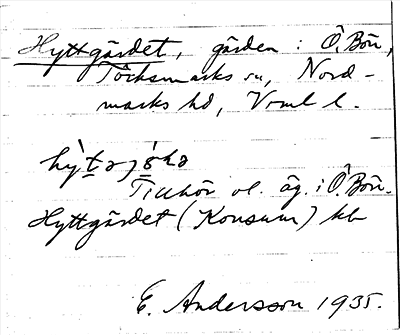 Hyttgärdet, gården i Ö. Bön,
Töcksmarks sn, Nord-
marks hd, Vrml l.
hỳt̲əjó̀ḷə
Tillhör el. äg. i Ö. Bön.
Hyttgärdet (Konsum) kb
E. Andersson 1935.